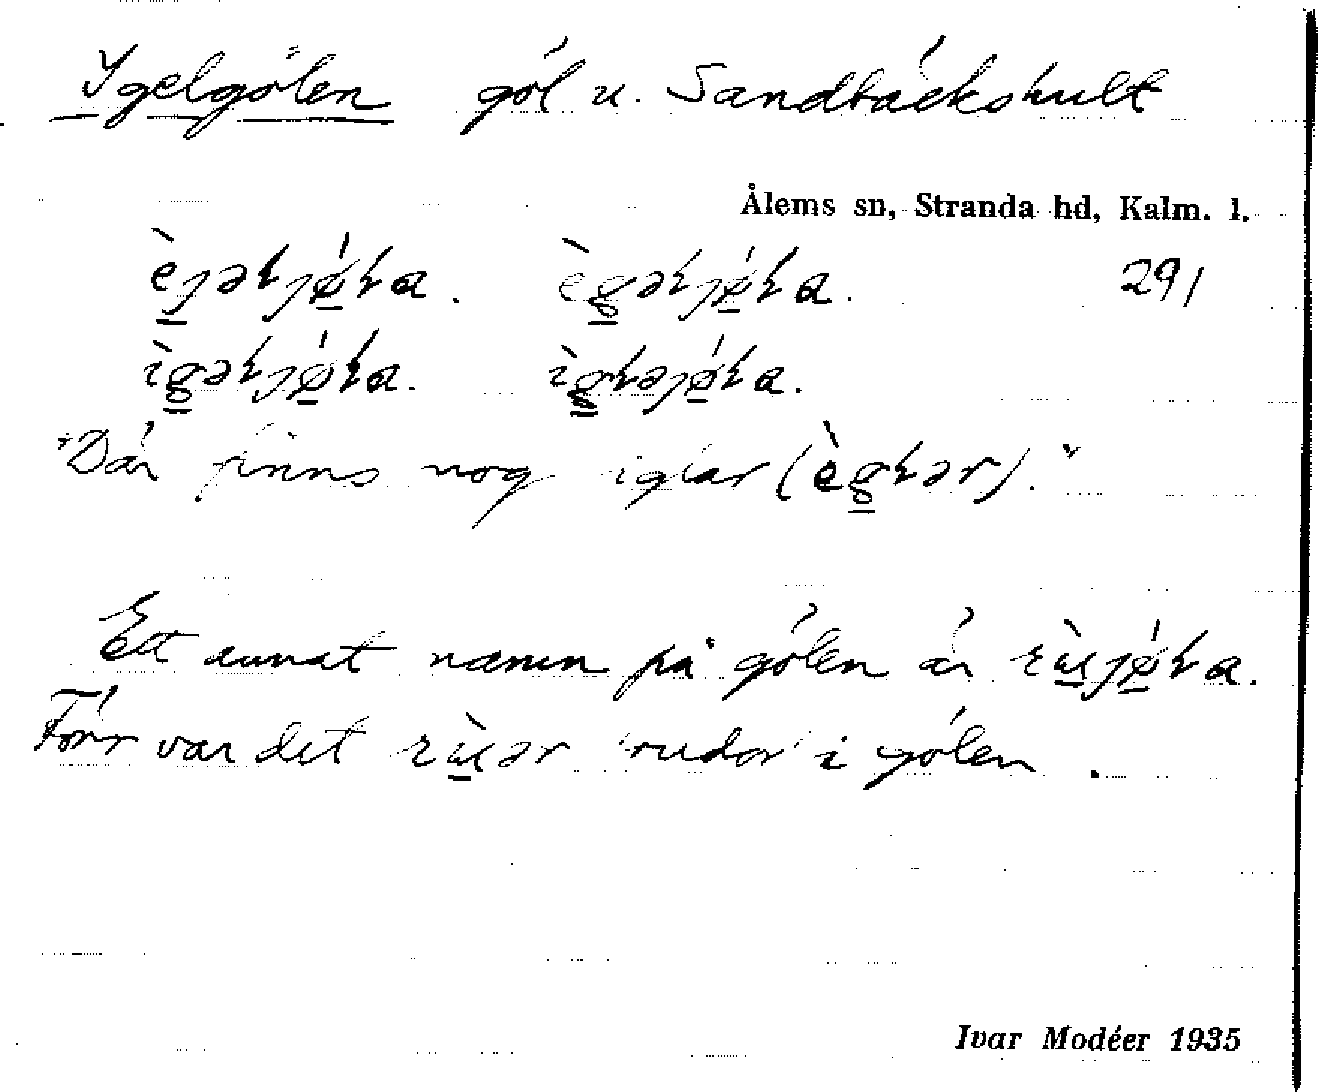 Igelgölen göl u. Sandbäckshult
Ålems sn, Stranda hd, Kalm. l.
èjəɫjǿɫa. ègəɫjǿɫa. 291
ìgəɫjǿɫa. ìgɫəjǿɫa.
"Där finns nog iglar (ègɫər)."
Ett annat namn på gölen är rùɯjǿɫa.
Förr var det rùɯər 'rudor' i gölen.
Ivar Modéer 1935